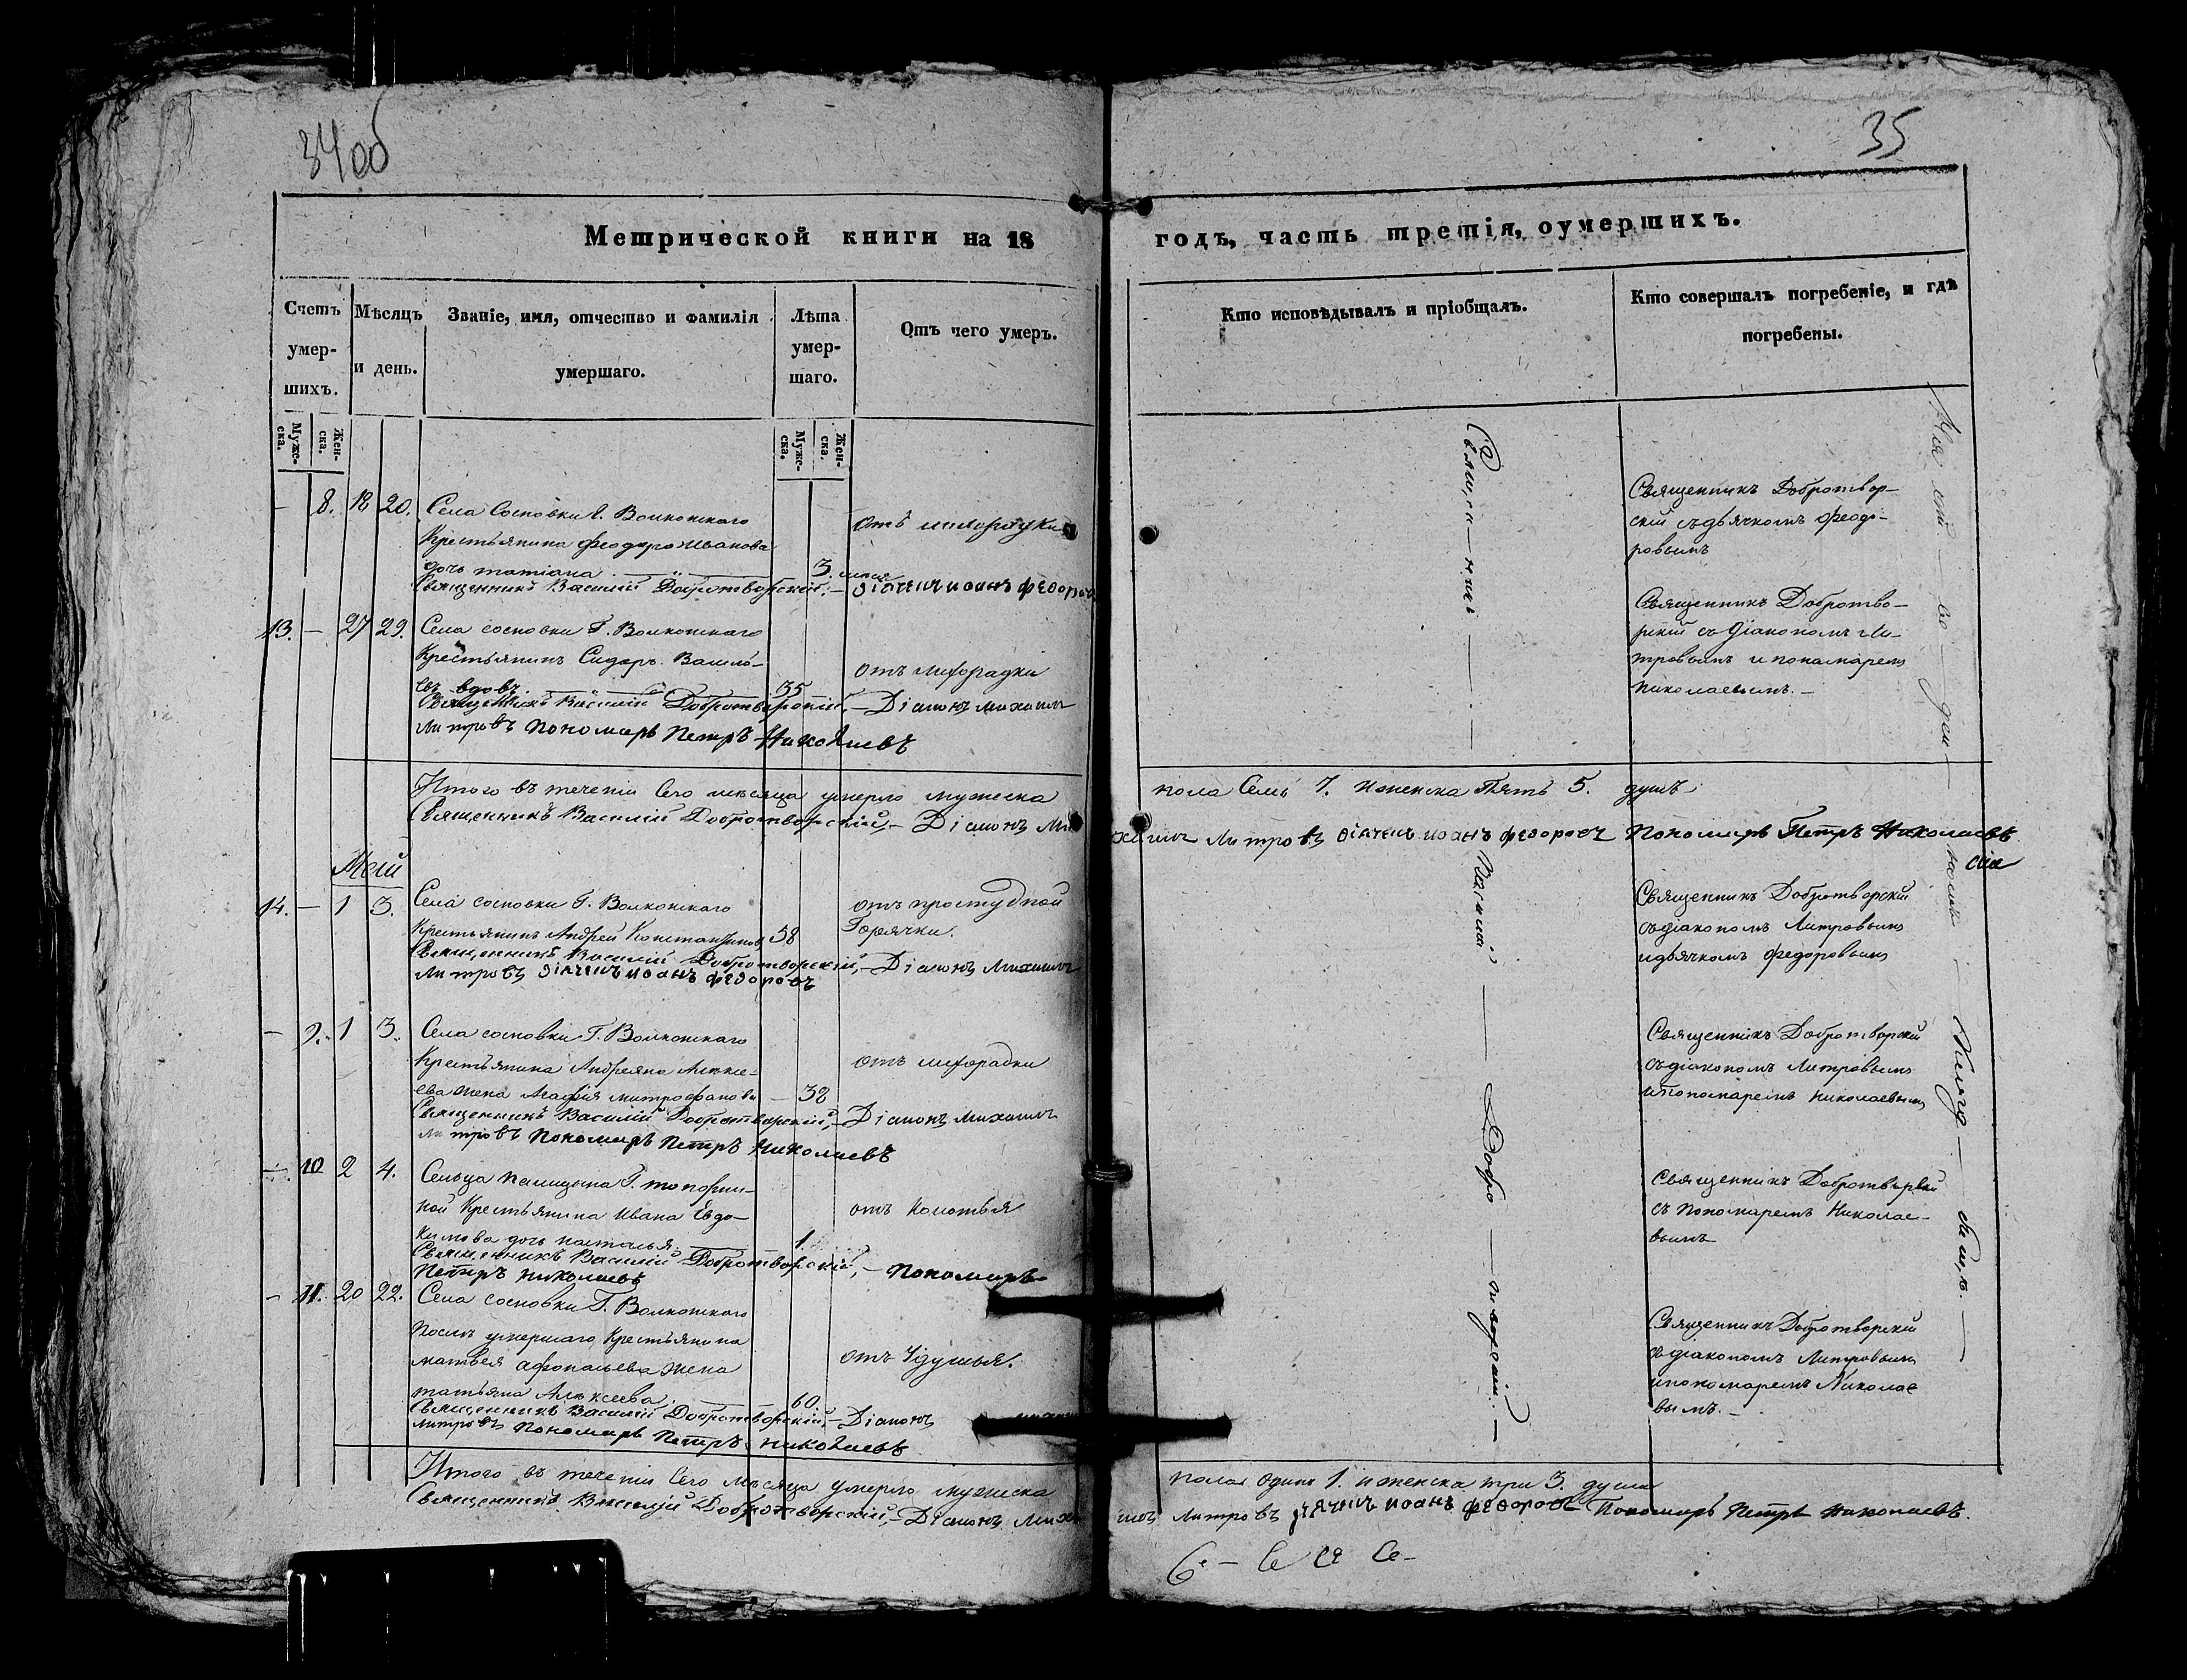 34об
Метрической книги на 18
Счетъ умер-
шихъ.
Мѣсяцъ
и день.
Званіе, имя, отчество и фамилія
умершаго.
Лѣта
умер-
шаго.
Отъ чего умеръ.
Мужес-
ка.
Жен-
ска.
Мужес-
ка.
Жен-
ска.
— 8. 18 20. Села Сосновки Г. Волконскаго
Крестьянина Феодора Иванова отъ лихорадки
дочь татіана 3.
Священникъ Василій Добротворскій, — дьячекъ иоанъ федоровъ
13. — 27 29. Села сосновки Г. Волконскаго
Крестьянинъ Сидоръ Василь- отъ лихорадки
евъ вдовъ 35
Священникъ Василій Добротворскій, — Діаконъ михаилъ
митровъ пономарь петръ Николаевъ
Итого въ теченіи сего месяца умерло мужеска
Священникъ Василій Добротворскій, — Діаконъ Ми
Маій
14. — 1 3. Села сосновки Г. Волконскаго отъ простудной
Крестьянинъ Андрей Константиновъ 58 Горячки.
Священникъ Василій Добротворскій, — Діаконъ Михаилъ
митровъ дьячекъ иоанъ федоровъ
— 9. 1 3. Села сосновки Г. Волконскаго
Крестьянина Андреяна Алексе- отъ лихорадки
ева жена Агафія митрофанова — 38
Священникъ Василій Добротворскій, — Діаконъ михаилъ
митровъ пономарь петръ николаевъ
— 10 2 4. Сельца палицына Г. топорни-
ной Крестьянина Ивана Евдо- отъ колотья
кимова дочь наталья 1.
Священникъ Василій Добротворскій, — пономарь
петръ николаевъ
— 11. 20 22. Села сосновки Г. Волконскаго
послѣ умершаго Крестьянина
матвея афонасьева жена отъ Удушья.
татьяна Алексеева 60.
Священникъ Василій Добротворскій, — Діаконъ
митровъ пономарь петръ николаевъ
Итого въ теченіи сего мѣсяца умерло мужеска
Священникъ Василій Добротворскій, — Діаконъ Мих
35
годъ, часть третія, оумершихъ.
Кто исповѣдывалъ и пріобщалъ.
Кто совершалъ погребеніе, и гдѣ
погребены.
Священникъ Добротвор-
скій съ дьячкомъ Феодо-
ровымъ
Священникъ Добротво-
рскій съ діакономъ Ми-
тровымъ и пономаремъ
николаевымъ. —
пола Семь 7. и женска Пять 5. душъ
хаилъ митровъ дьячекъ иоанъ федоровъ Пономарь Петръ Николаевъ
Священникъ Добротворскій
съ діакономъ Митровымъ
и дьячкомъ федоровымъ
Священникъ Добротворскій
съ діакономъ Митровымъ
и пономаремъ николаевымъ
Священникъ Добротворскій
съ пономаремъ Николае-
вымъ
Священникъ Добротворскій
съ діакономъ Митровымъ
и пономаремъ Николае
вымъ. —
пола одинъ 1. и женска три 3. души
илъ митровъ дьячекъ иоанъ федоровъ Пономарь петръ николаевъ.
Свя,щен — никъ — Василій — Добро — творскій. —